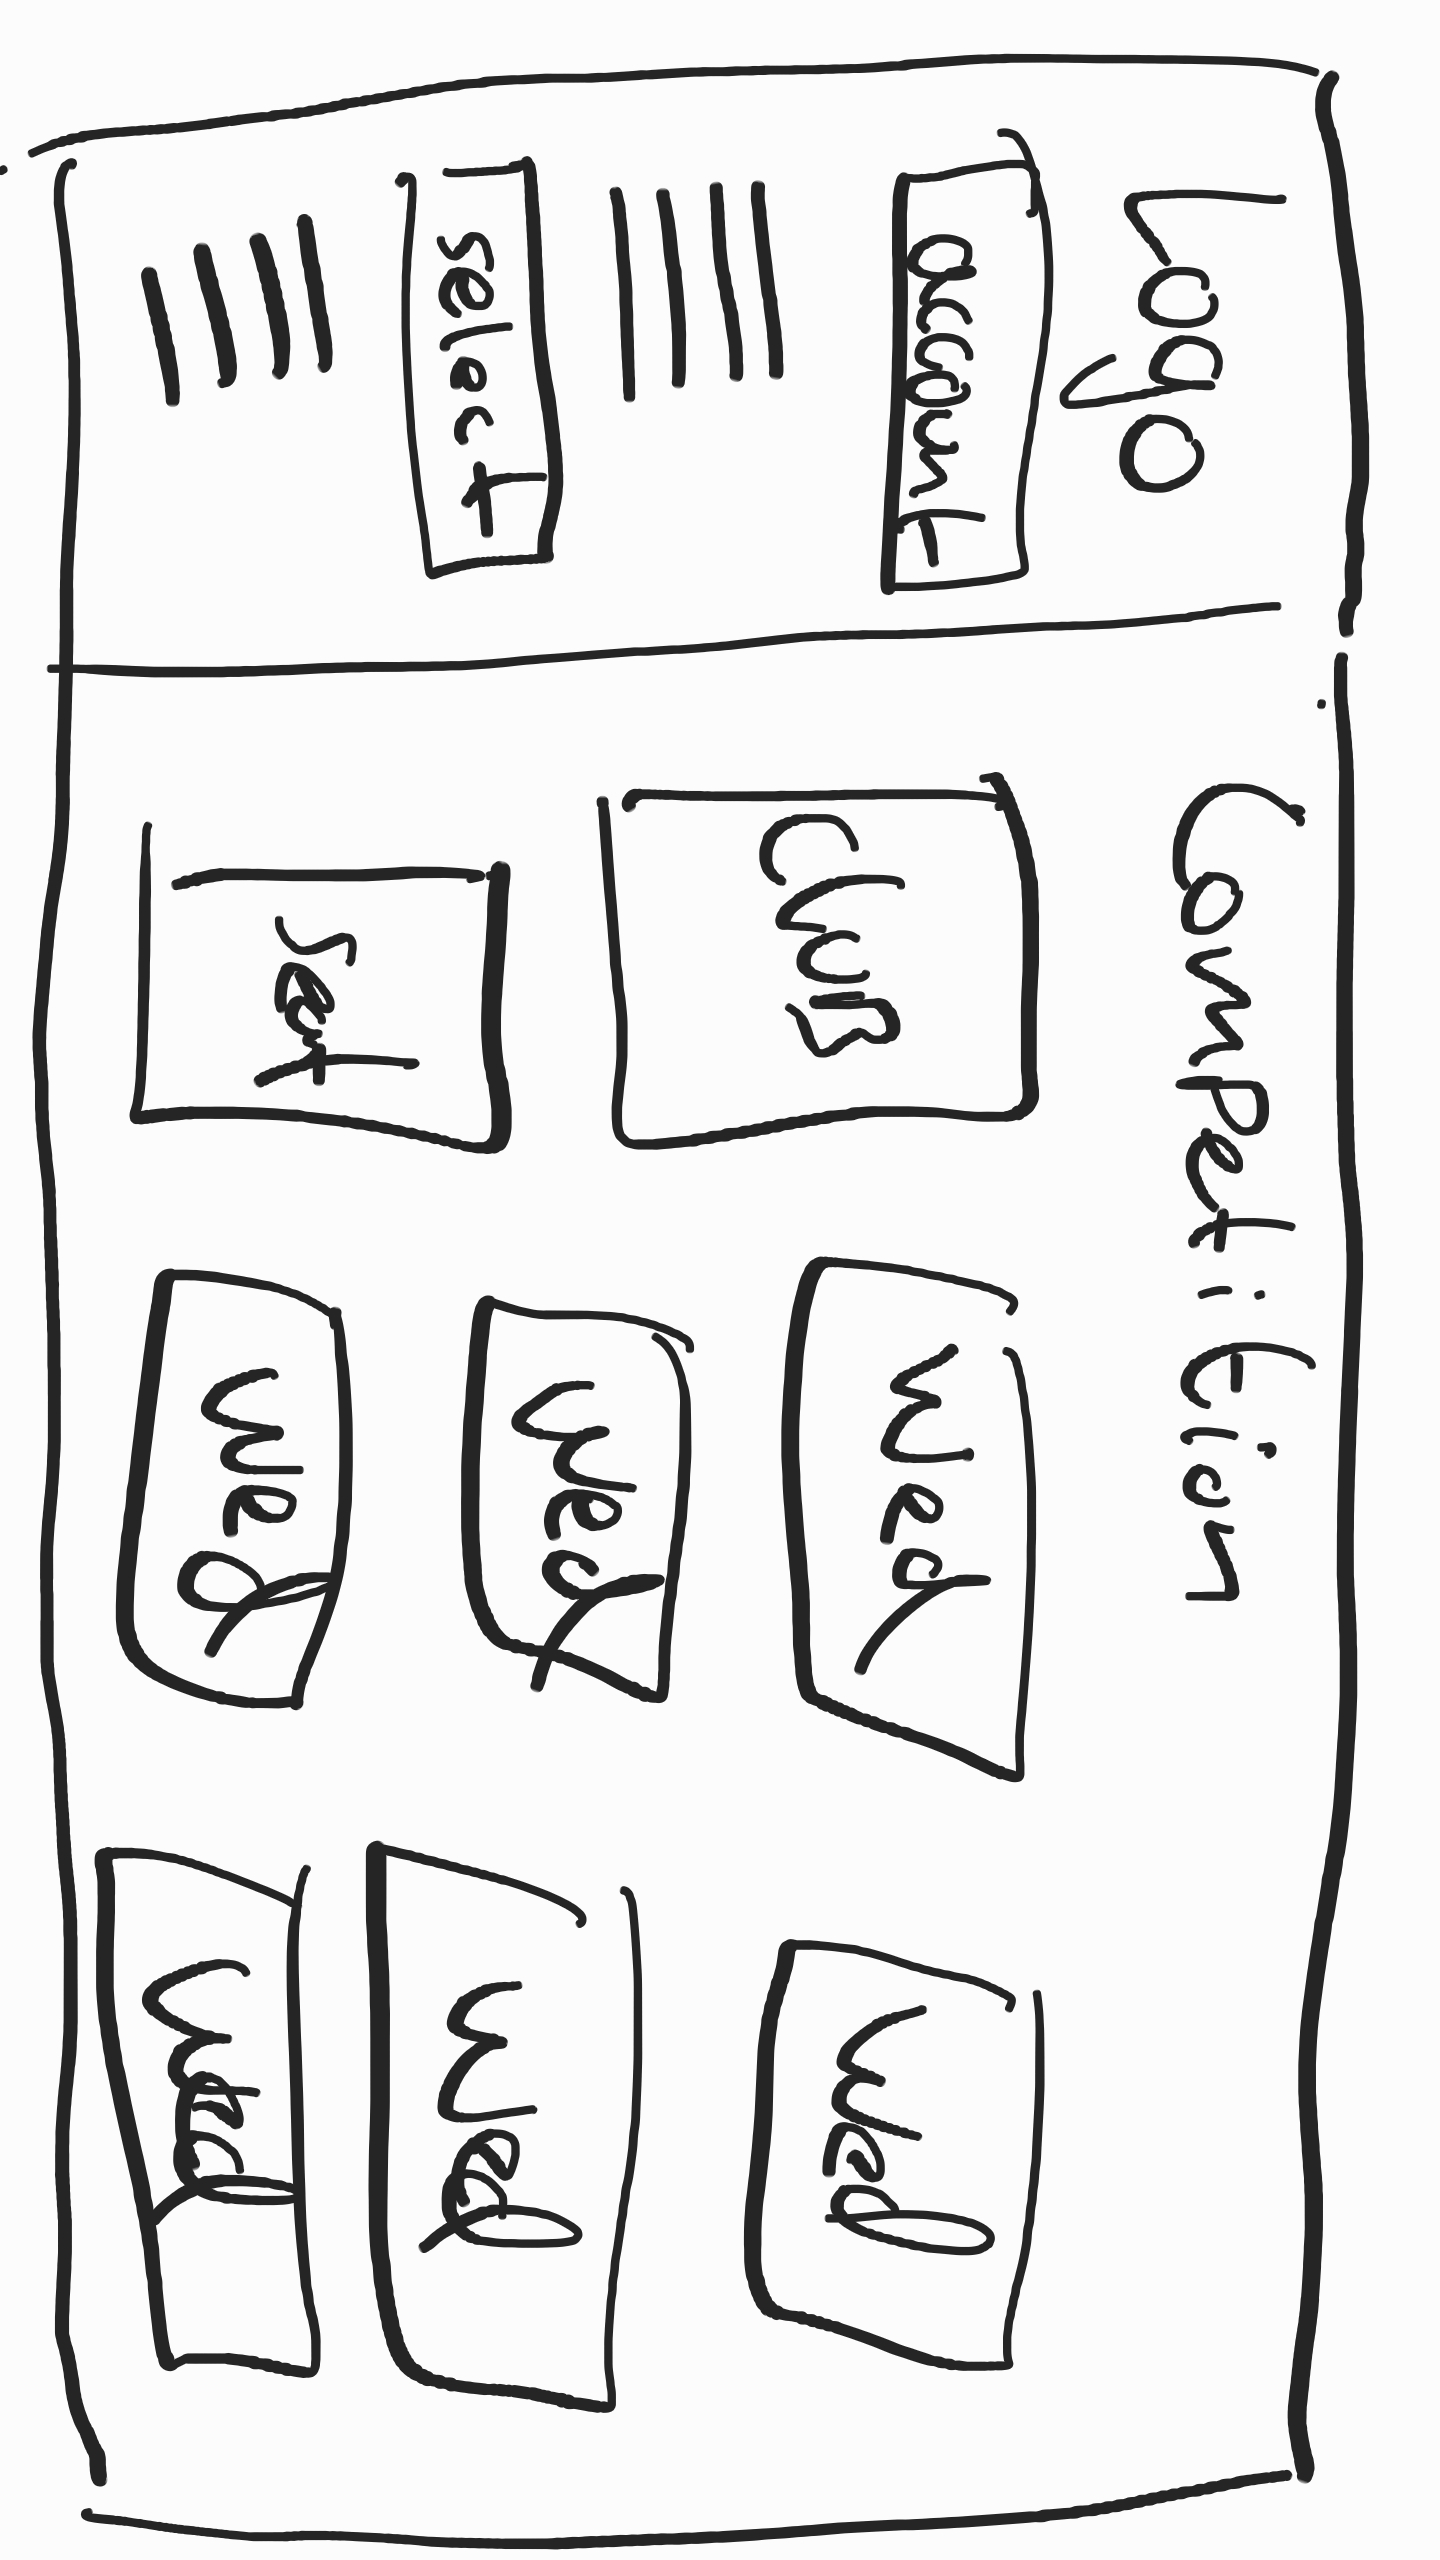 Logo
account
select
Competition
CluB
Wed
Wed
Wed
Wed
Seat
Wed
Wed